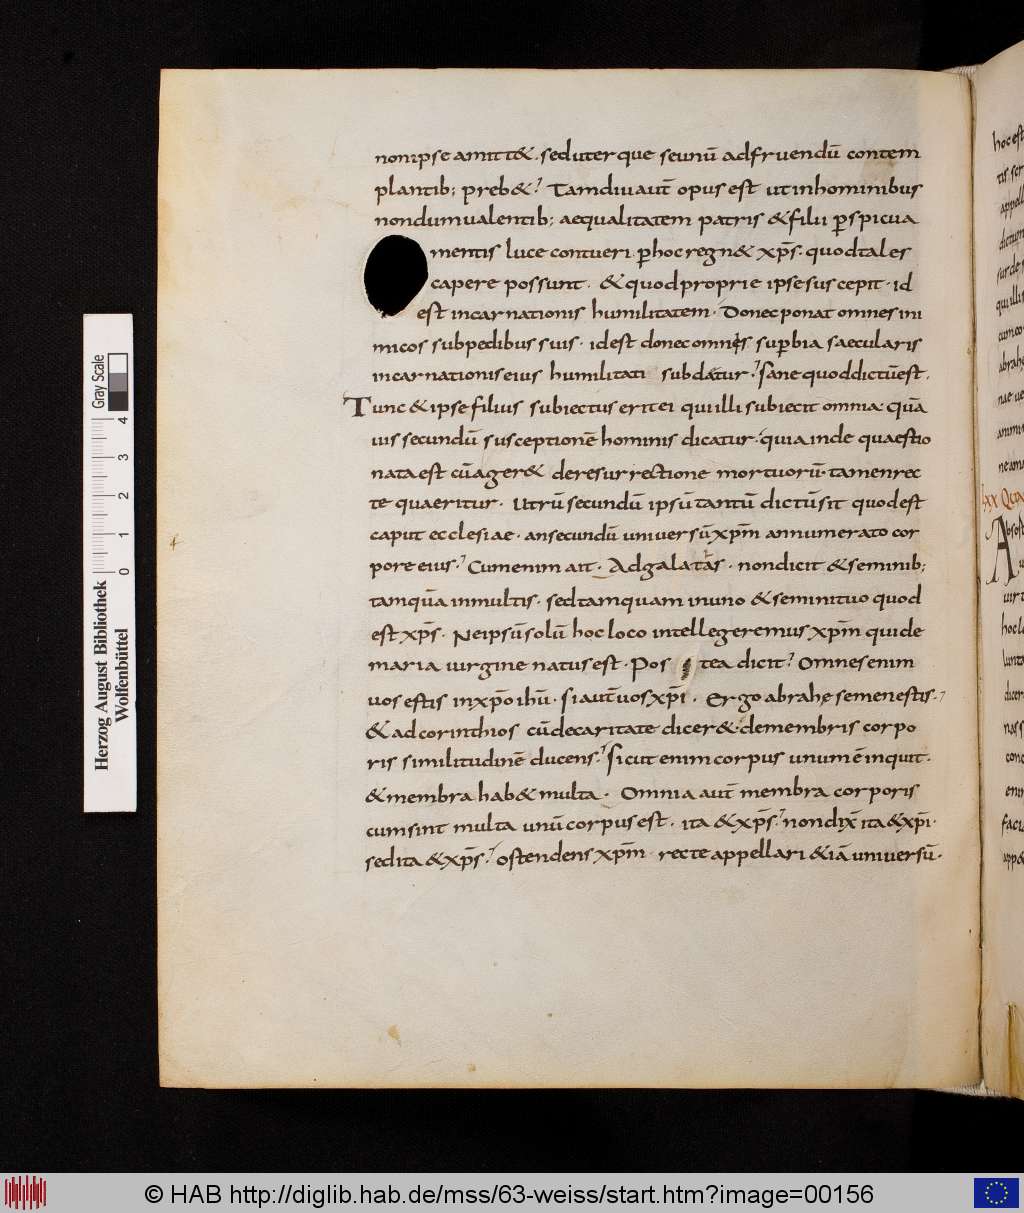 non ipse amitt&. sed uterque se unū ad fruendū contem
plantib; preb&. Tamdiu aut̄ opus est ut in hominibus
nondum ualentib; aequalitatem patris & filii p̄spicua
mentis luce contueri p̄ hoc regn& xp̄s. quod tales
capere possunt. & quod proprie ipse suscepit. id
est incarnationis humilitatem. Donec ponat omnes ini
micos sub pedibus suis. id est donec omnis sup̄bia saecularis
incarnationis eius humilitati subdatur. Sane quod dictū est.
Tunc & ipse filius subiectus erit ei qui illi subiecit omnia. quā
uis secundū susceptionē hominis dicatur. quia inde quaestio
nata est cū ager& de resurrectione mortuorū. tamen rec
te quaeritur. Utrū secundū ipsū tantū dictū sit quod est
caput ecclesiae. an secundū uniuersū xp̄m annumerato cor
pore eius. Cum enim ait. Ad galatas. non dicit & seminib;
tamquā in multis. sed tamquam in uno & semini tuo quod
est xp̄s. Ne ipsū solū hoc loco intellegeremus xp̄m qui de
maria uirgine natus est. Pos tea dicit. Omnes enim
uos estis in xp̄o ihū. si aut̄ uos xp̄i. Ergo abrahę semen estis.
& ad corinthios cū de caritate dicer& de membris corpo
ris similitudinē ducens. Sicut enim corpus unum ē inquit.
& membra hab& multa. Omnia aut̄ membra corporis
cum sint multa unū corpus est. ita & xp̄s. non dix̄ ita & xp̄i.
sed ita & xp̄s. ostendens xp̄m. recte appellari & iā uniuersū.
hoc est
Gray Scale
4
3
2
1
0
Herzog August Bibliothek
Wolfenbüttel
© HAB http://diglib.hab.de/mss/63-weiss/start.htm?image=00156